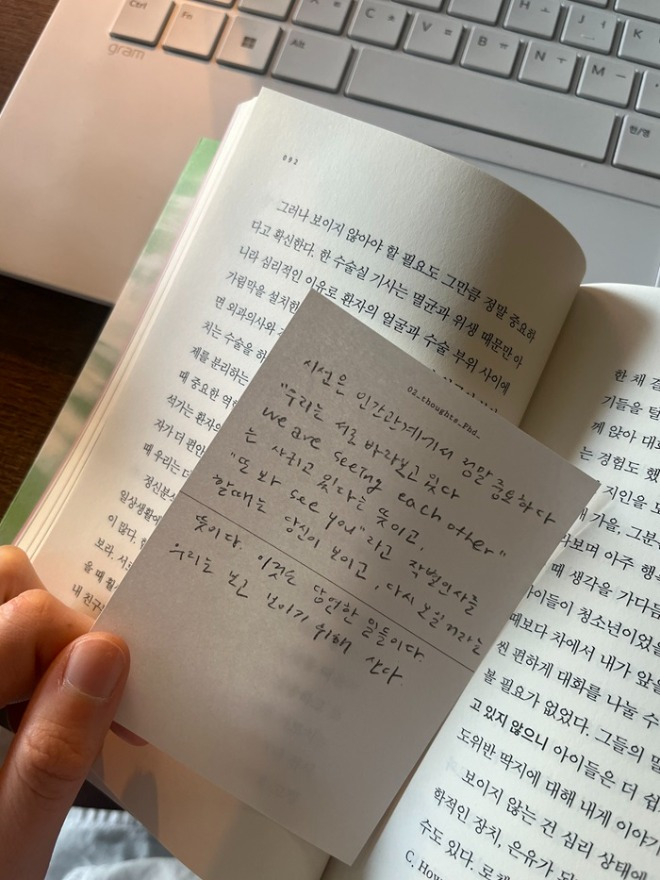 Ctrl
Fn
Alt
C ㅊ
V ㅍ
B ㅠ
N ㅜ
M ㅡ
H ㅗ
J ㅓ
K
한/영
gram
092
그러나 보이지 않아야 할 필요도 그만큼 정말 중요하
다고 확신한다. 한 수술실 기사는 멸균과 위생 때문만 아
니라 심리적인 이유로 환자의 얼굴과 수술 부위 사이에
가림막을 설치한
면 외과의사와
저는 수술을 허
제를 분리하는
때 중요한 역
석가는 환자의
자가 더 편안
때 우리는 더
정신분석
일상생활에
이 많다.
보라, 서로
을 때 훨
내 친구
02_thoughts_Phd_
시선은 인간관계에서 정말 중요하다
"우리는 서로 바라보고 있다
we are seeing each other"
는 사귀고 있다는 뜻이고,
"또 봐 see you"라고 작별인사를
할때는 당신이 보이고, 다시 보일거라는
뜻이다. 이것은 당연한 일들이다.
우리는 보고 보이기 위해 산다.
한 채
기들을
께 앉아
는 경험도 했
지인을
가을, 그분
라보며 아주
때 생각을 가다듬
아이들이 청소년이었을
때보다 차에서 내가 앞을
씬 편하게 대화를 나눌 수
볼 필요가 없었다. 그들의
고 있지 않으니 아이들은 더 쉽
도위반 딱지에 대해 내게 이야기
보이지 않는 건 심리 상태에
학적인 장치, 은유가
수도 있다.
C. How